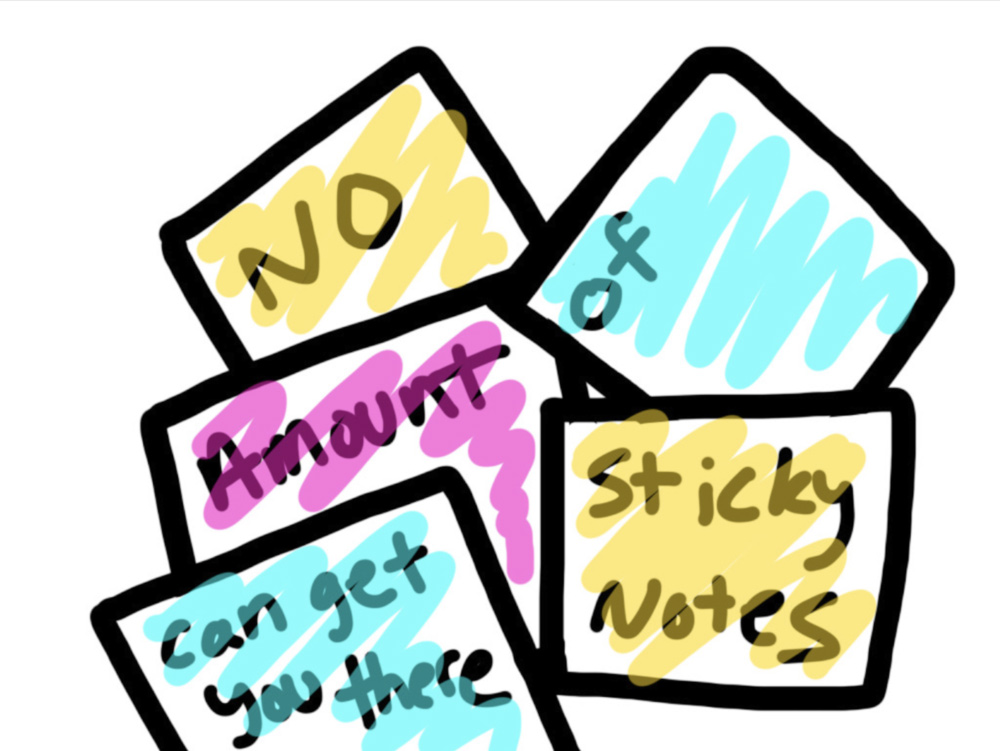 NO
of
Amount
Sticky
Notes
can get
you there